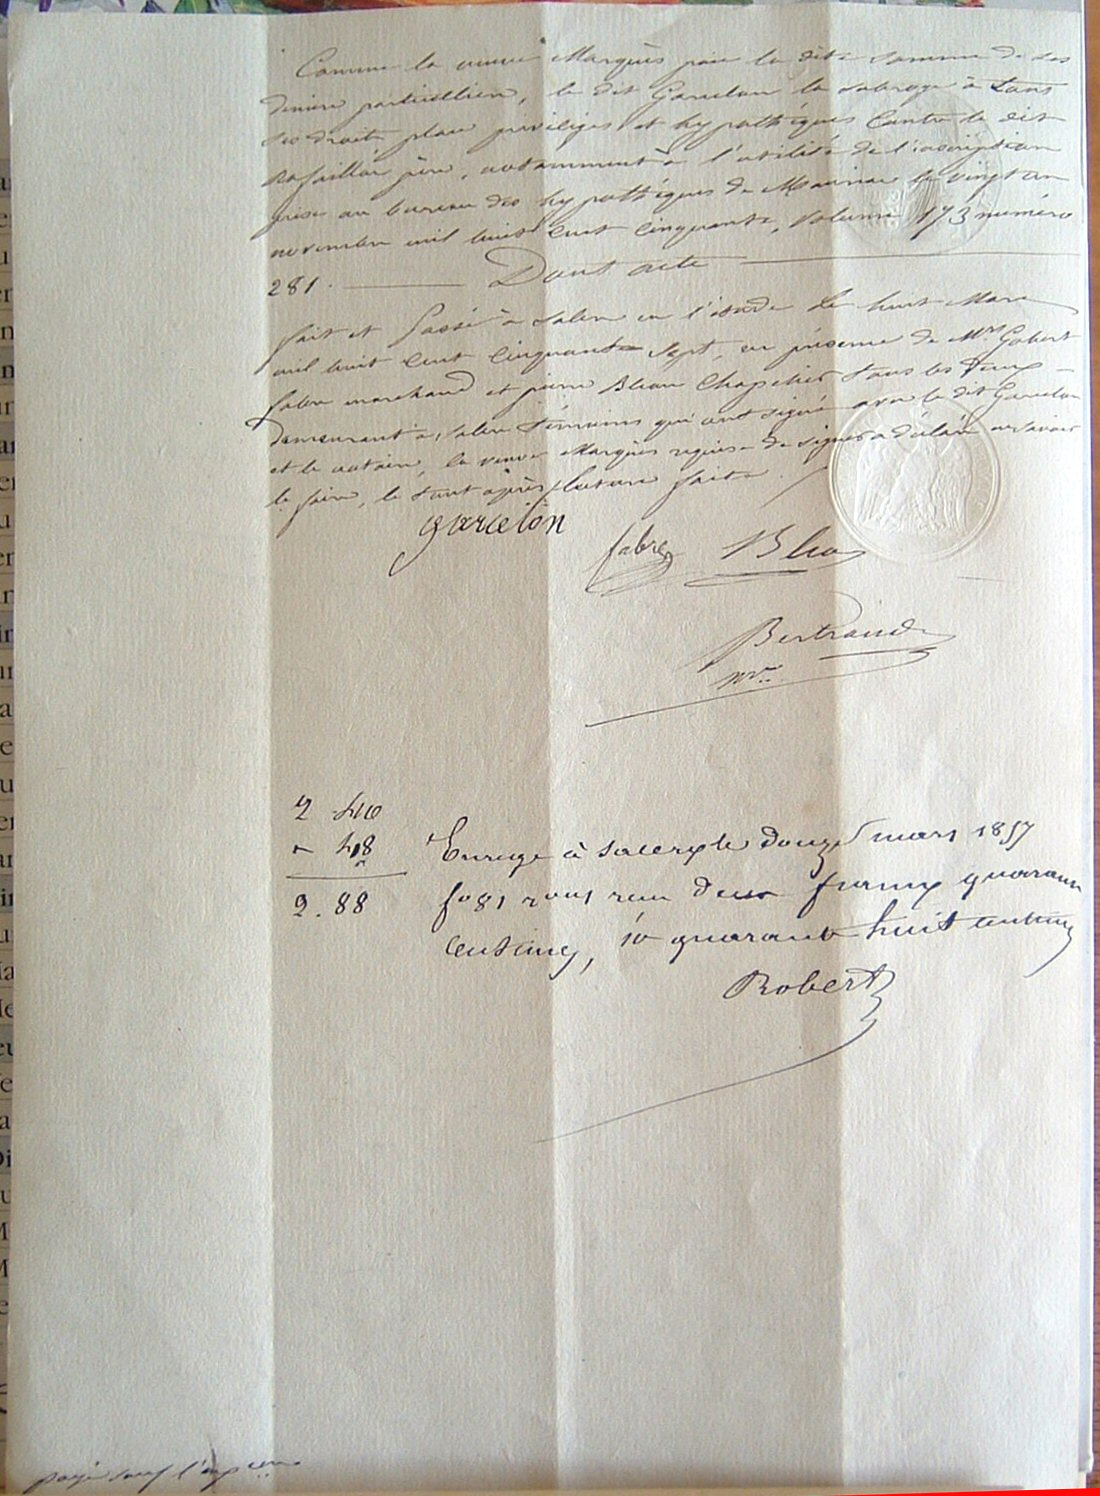 Comme la veuve Marquès paie la dite somme de ses
deniers particuliers, le dit Garcelon la subroge à tous
ses droits, place privilèges et hypothèques contre le dit
père, notamment à l'utilité de l'inscription
prise au bureau des hypothèques de Mauriac le vingt un
novembre mil huit cent cinquante, volume 173 numéro
281. Dont acte
fait et Passé à Salers en l'étude le huit Mars
mil huit cent cinquante sept, en présence de Mrs
fabre marchand et pierre Chapelier tous les deux
demeurant à Salers témoins qui ont signé avec le dit Garcelon
et le notaire, la veuve Marquès requise de signer a déclaré ne savoir
le faire, le tout après lecture faite.
garcelon
fabre
Bertrand
nre
2 40
- 48
2.88
Enregé à Salers le douze mars 1857
fo 81 reçu deux francs quarante
centimes, 10e quarante huit centimes
Robert
payé sauf